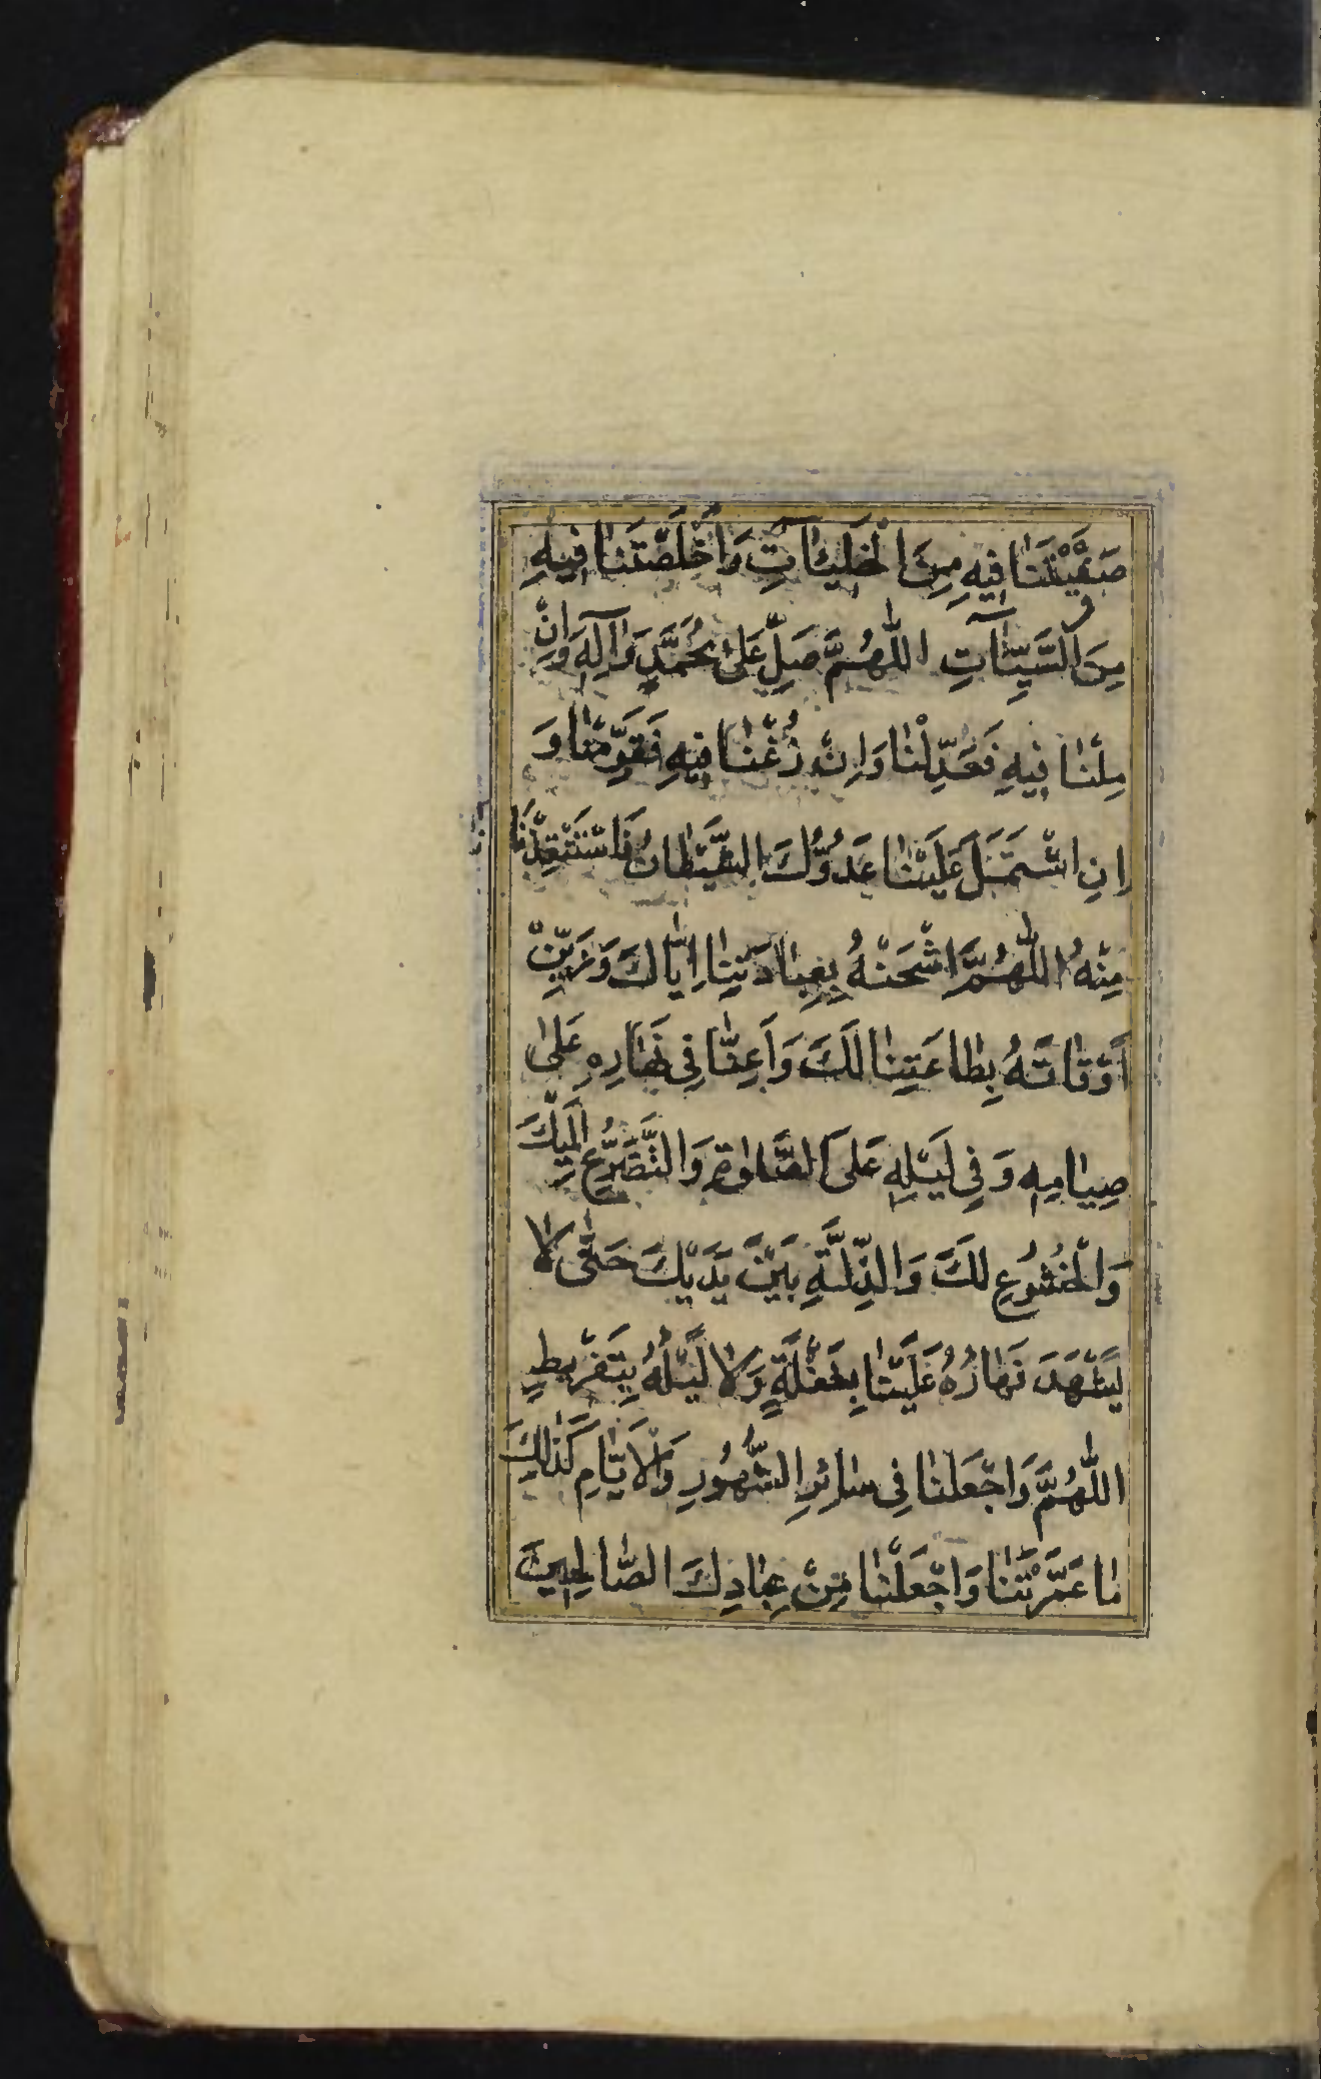 صَفَّيْتَنَا فِيهِ مِنَ الْخَطِيئَاتِ وَأَخْلَصْتَنَا فِيهِ
مِنَ السَّيِّئَاتِ اللّٰهُمَّ صَلِّ عَلىٰ مُحَمَّدٍ وَآلِهِ وَاِنْ
مِلْنٰا فِيهِ فَعَدِّلْنٰا وَاِنْ زُغْنٰا فِيهِ فَقَوِّمْنٰا وَ
اِنِ اشْتَمَلَ عَلَيْنٰا عَدُوُّكَ الشَّيْطٰانُ فَاسْتَنْقِذْنَا
مِنْهُ اللّٰهُمَّ اشْحَنْهُ بِعِبٰادَتِنٰا اِيّٰاكَ وَزَيِّنْ
اَوْقٰاتَهُ بِطٰاعَتِنٰا لَكَ وَاَعِنّٰا فِي نَهٰارِهِ عَلىٰ
صِيٰامِهِ وَفِي لَيْلِهِ عَلَى الصَّلٰوةِ وَالتَّضَرُّعِ اِلَيْكَ
وَالْخُشُوعِ لَكَ وَالذِّلَّةِ بَيْنَ يَدَيْكَ حَتّٰى لٰا
يَشْهَدَ نَهٰارُهُ عَلَيْنٰا بِغَفْلَةٍ وَلٰا لَيْلُهُ بِتَفْرِيطٍ
اللّٰهُمَّ وَاجْعَلْنٰا فِي سٰائِرِ الشُّهُورِ وَالْاَيّٰامِ كَذٰلِكَ
مٰا عَمَّرْتَنٰا وَاجْعَلْنٰا مِنْ عِبٰادِكَ الصّٰالِحِينَ